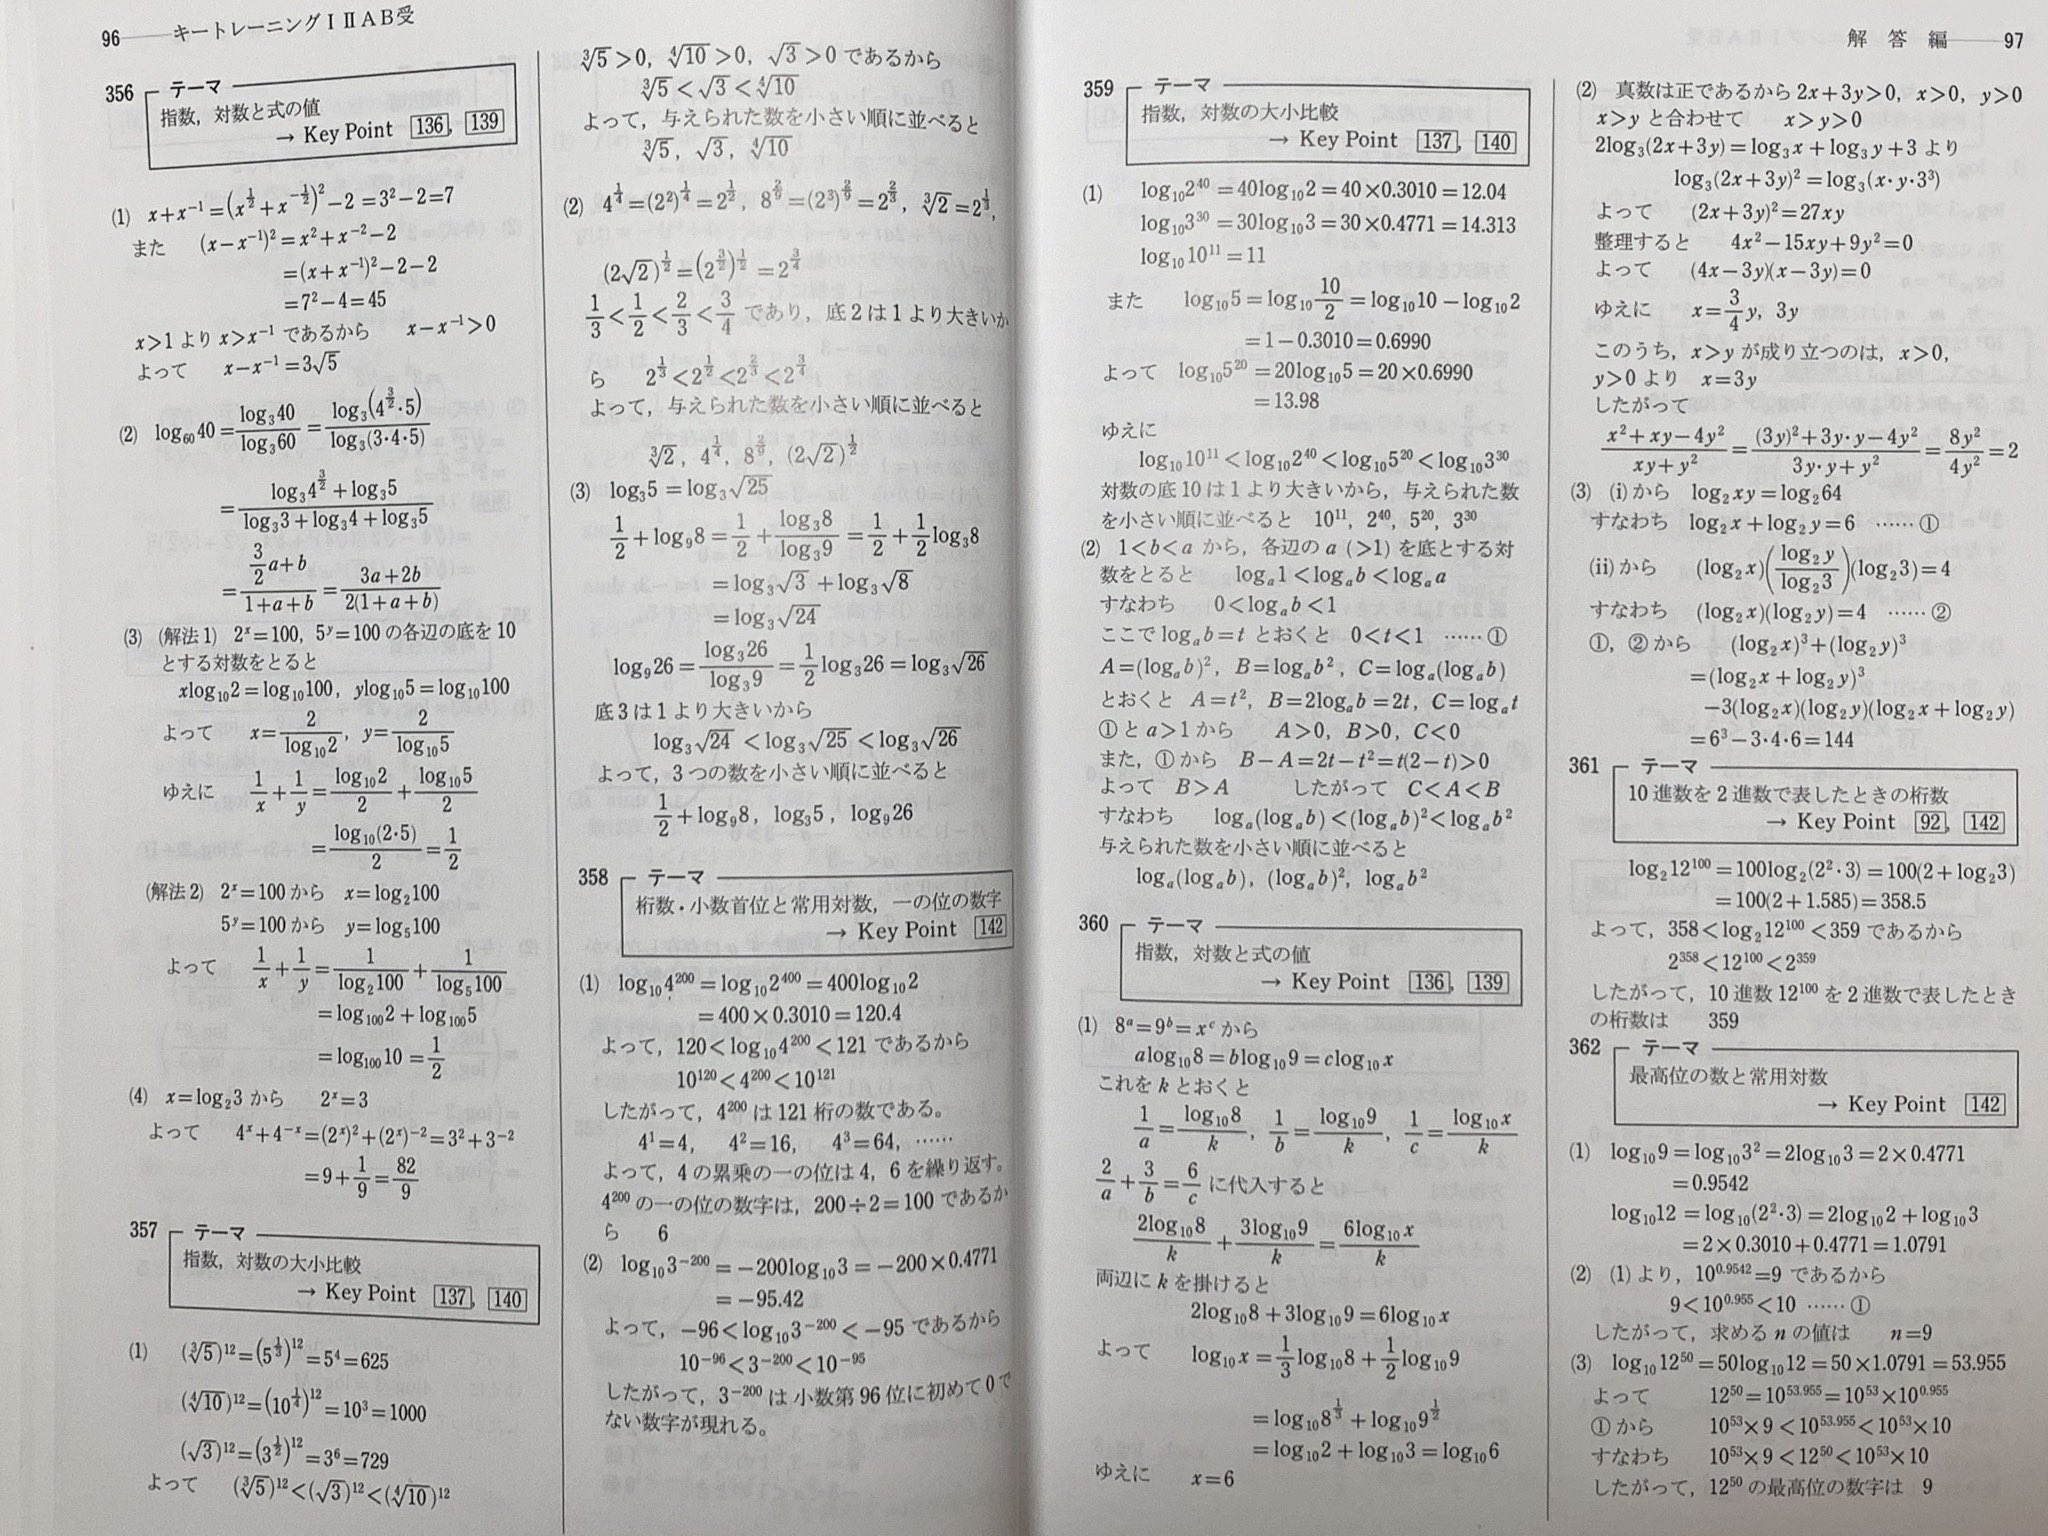 96 キートレーニングⅠⅡAB受
356 テーマ
指数，対数と式の値
→ Key Point 136，139
(1) x+x⁻¹=(x^{1/2}+x^{-1/2})²−2=3²−2=7
また (x−x⁻¹)²=x²+x⁻²−2
=(x+x⁻¹)²−2−2
=7²−4=45
x>1 より x>x⁻¹ であるから x−x⁻¹>0
よって x−x⁻¹=3√5
(2) log₆₀40=log₃40/log₃60=log₃(4^{3/2}·5)/log₃(3·4·5)
=(log₃4^{3/2}+log₃5)/(log₃3+log₃4+log₃5)
=(3/2 a+b)/(1+a+b)=(3a+2b)/2(1+a+b)
(3) (解法1) 2ˣ=100，5ʸ=100 の各辺の底を 10
とする対数をとると
xlog₁₀2=log₁₀100，ylog₁₀5=log₁₀100
よって x=2/log₁₀2，y=2/log₁₀5
ゆえに 1/x+1/y=log₁₀2/2+log₁₀5/2
=log₁₀(2·5)/2=1/2
(解法2) 2ˣ=100 から x=log₂100
5ʸ=100 から y=log₅100
よって 1/x+1/y=1/log₂100+1/log₅100
=log₁₀₀2+log₁₀₀5
=log₁₀₀10=1/2
(4) x=log₂3 から 2ˣ=3
よって 4ˣ+4⁻ˣ=(2ˣ)²+(2ˣ)⁻²=3²+3⁻²
=9+1/9=82/9
357 テーマ
指数，対数の大小比較
→ Key Point 137，140
(1) (∛5)¹²=(5^{1/3})¹²=5⁴=625
(∜10)¹²=(10^{1/4})¹²=10³=1000
(√3)¹²=(3^{1/2})¹²=3⁶=729
よって (∛5)¹²<(√3)¹²<(∜10)¹²
∛5>0，∜10>0，√3>0 であるから
∛5<√3<∜10
よって，与えられた数を小さい順に並べると
∛5，√3，∜10
(2) 4^{1/4}=(2²)^{1/4}=2^{1/2}，8^{2/9}=(2³)^{2/9}=2^{2/3}，∛2=2^{1/3}，
(2√2)^{1/2}=(2^{3/2})^{1/2}=2^{3/4}
1/3<1/2<2/3<3/4 であり，底 2 は 1 より大きいか
ら 2^{1/3}<2^{1/2}<2^{2/3}<2^{3/4}
よって，与えられた数を小さい順に並べると
∛2，4^{1/4}，8^{2/9}，(2√2)^{1/2}
(3) log₃5=log₃√25
1/2+log₉8=1/2+log₃8/log₃9=1/2+1/2log₃8
=log₃√3+log₃√8
=log₃√24
log₉26=log₃26/log₃9=1/2log₃26=log₃√26
底 3 は 1 より大きいから
log₃√24<log₃√25<log₃√26
よって，3 つの数を小さい順に並べると
1/2+log₉8，log₃5，log₉26
358 テーマ
桁数・小数首位と常用対数，一の位の数字
→ Key Point 142
(1) log₁₀4²⁰⁰=log₁₀2⁴⁰⁰=400log₁₀2
=400×0.3010=120.4
よって，120<log₁₀4²⁰⁰<121 であるから
10¹²⁰<4²⁰⁰<10¹²¹
したがって，4²⁰⁰ は 121 桁の数である。
4¹=4， 4²=16， 4³=64，……
よって，4 の累乗の一の位は 4，6 を繰り返す。
4²⁰⁰ の一の位の数字は，200÷2=100 であるか
ら 6
(2) log₁₀3⁻²⁰⁰=−200log₁₀3=−200×0.4771
=−95.42
よって，−96<log₁₀3⁻²⁰⁰<−95 であるから
10⁻⁹⁶<3⁻²⁰⁰<10⁻⁹⁵
したがって，3⁻²⁰⁰ は小数第 96 位に初めて 0 で
ない数字が現れる。
解 答 編 97
359 テーマ
指数，対数の大小比較
→ Key Point 137，140
(1) log₁₀2⁴⁰=40log₁₀2=40×0.3010=12.04
log₁₀3³⁰=30log₁₀3=30×0.4771=14.313
log₁₀10¹¹=11
また log₁₀5=log₁₀10/2=log₁₀10−log₁₀2
=1−0.3010=0.6990
よって log₁₀5²⁰=20log₁₀5=20×0.6990
=13.98
ゆえに
log₁₀10¹¹<log₁₀2⁴⁰<log₁₀5²⁰<log₁₀3³⁰
対数の底 10 は 1 より大きいから，与えられた数
を小さい順に並べると 10¹¹，2⁴⁰，5²⁰，3³⁰
(2) 1<b<a から，各辺の a (>1) を底とする対
数をとると logₐ1<logₐb<logₐa
すなわち 0<logₐb<1
ここで logₐb=t とおくと 0<t<1 ……①
A=(logₐb)²，B=logₐb²，C=logₐ(logₐb)
とおくと A=t²，B=2logₐb=2t，C=logₐt
①と a>1 から A>0，B>0，C<0
また，①から B−A=2t−t²=t(2−t)>0
よって B>A したがって C<A<B
すなわち logₐ(logₐb)<(logₐb)²<logₐb²
与えられた数を小さい順に並べると
logₐ(logₐb)，(logₐb)²，logₐb²
360 テーマ
指数，対数と式の値
→ Key Point 136，139
(1) 8ᵃ=9ᵇ=xᶜ から
alog₁₀8=blog₁₀9=clog₁₀x
これを k とおくと
1/a=log₁₀8/k，1/b=log₁₀9/k，1/c=log₁₀x/k
2/a+3/b=6/c に代入すると
2log₁₀8/k+3log₁₀9/k=6log₁₀x/k
両辺に k を掛けると
2log₁₀8+3log₁₀9=6log₁₀x
よって log₁₀x=1/3log₁₀8+1/2log₁₀9
=log₁₀8^{1/3}+log₁₀9^{1/2}
=log₁₀2+log₁₀3=log₁₀6
ゆえに x=6
(2) 真数は正であるから 2x+3y>0，x>0，y>0
x>y と合わせて x>y>0
2log₃(2x+3y)=log₃x+log₃y+3 より
log₃(2x+3y)²=log₃(x·y·3³)
よって (2x+3y)²=27xy
整理すると 4x²−15xy+9y²=0
よって (4x−3y)(x−3y)=0
ゆえに x=3/4y，3y
このうち，x>y が成り立つのは，x>0，
y>0 より x=3y
したがって
(x²+xy−4y²)/(xy+y²)=((3y)²+3y·y−4y²)/(3y·y+y²)=8y²/4y²=2
(3) (i)から log₂xy=log₂64
すなわち log₂x+log₂y=6 ……①
(ii)から (log₂x)(log₂y/log₂3)(log₂3)=4
すなわち (log₂x)(log₂y)=4 ……②
①，②から (log₂x)³+(log₂y)³
=(log₂x+log₂y)³
−3(log₂x)(log₂y)(log₂x+log₂y)
=6³−3·4·6=144
361 テーマ
10 進数を 2 進数で表したときの桁数
→ Key Point 92，142
log₂12¹⁰⁰=100log₂(2²·3)=100(2+log₂3)
=100(2+1.585)=358.5
よって，358<log₂12¹⁰⁰<359 であるから
2³⁵⁸<12¹⁰⁰<2³⁵⁹
したがって，10 進数 12¹⁰⁰ を 2 進数で表したとき
の桁数は 359
362 テーマ
最高位の数と常用対数
→ Key Point 142
(1) log₁₀9=log₁₀3²=2log₁₀3=2×0.4771
=0.9542
log₁₀12=log₁₀(2²·3)=2log₁₀2+log₁₀3
=2×0.3010+0.4771=1.0791
(2) (1)より，10^{0.9542}=9 であるから
9<10^{0.955}<10 ……①
したがって，求める n の値は n=9
(3) log₁₀12⁵⁰=50log₁₀12=50×1.0791=53.955
よって 12⁵⁰=10^{53.955}=10⁵³×10^{0.955}
①から 10⁵³×9<10^{53.955}<10⁵³×10
すなわち 10⁵³×9<12⁵⁰<10⁵³×10
したがって，12⁵⁰ の最高位の数字は 9